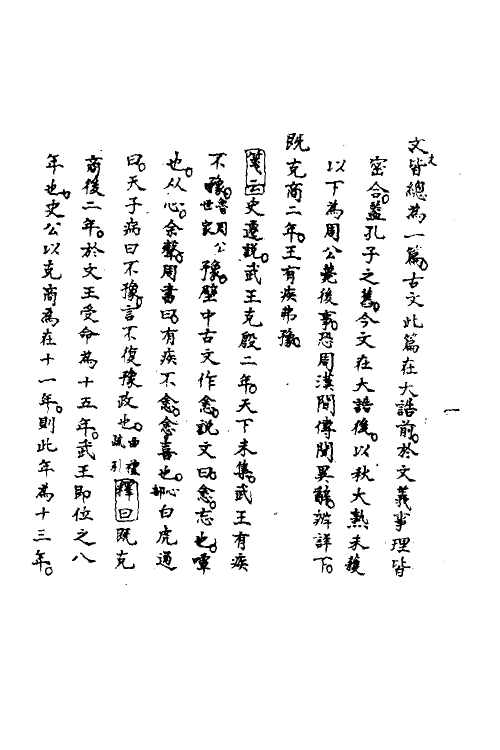 文皆總為一篇古文此篇在大誥前於文義事理皆
密合蓋孔子之舊今文在大誥後以秋大熟未穫
以下為周公薨後事恐周漢間傳聞異辭辨詳下
既克商二年王有疾弗豫
箋云史遷說武王克殷二年天下未集武王有疾
不豫魯周公世家豫壁中古文作悆說文曰悆忘也嘾
也从心余聲周書曰有疾不悆悆喜也心部白虎通
曰天子病曰不豫言不復豫政也曲禮疏引釋曰既克
商後二年於文王受命為十五年武王即位之八
年也史公以克商為在十一年則此年為十三年
一